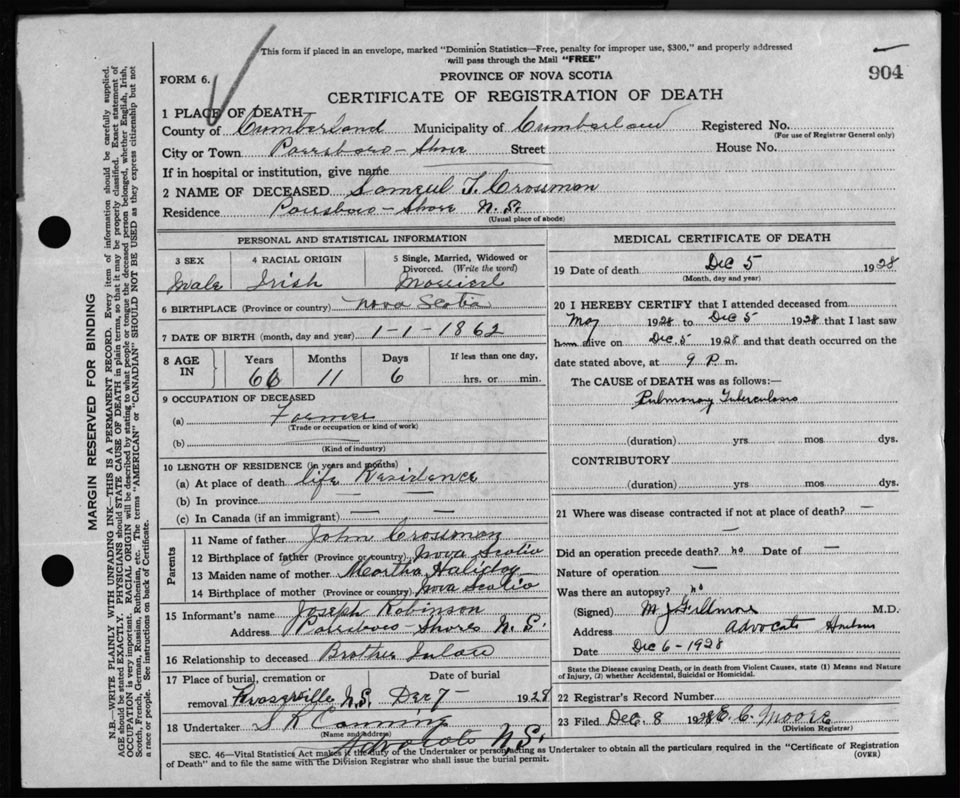 This form if placed in an envelope, marked "Dominion Statistics—Free, penalty for improper use, $300," and properly addressed
will pass through the Mail "FREE"
904
FORM 6.
PROVINCE OF NOVA SCOTIA
CERTIFICATE OF REGISTRATION OF DEATH
1 PLACE OF DEATH
County of Cumberland Municipality of Cumberland Registered No.
(For use of Registrar General only)
City or Town Parrsboro - Shore Street House No.
If in hospital or institution, give name
2 NAME OF DECEASED Samuel T. Crossman
Residence Parrsboro - Shore N. S.
(Usual place of abode)
PERSONAL AND STATISTICAL INFORMATION
3 SEX 4 RACIAL ORIGIN 5 Single, Married, Widowed or
Divorced. (Write the word)
Male Irish Married
6 BIRTHPLACE (Province or country) Nova Scotia
7 DATE OF BIRTH (month, day and year) 1-1-1862
8 AGE IN Years Months Days If less than one day,
66 11 6 hrs. or min.
9 OCCUPATION OF DECEASED
(a) Farmer
(Trade or occupation or kind of work)
(b)
(Kind of industry)
10 LENGTH OF RESIDENCE (in years and months)
(a) At place of death life Residence
(b) In province — —
(c) In Canada (if an immigrant) — —
Parents
11 Name of father John Crossman
12 Birthplace of father (Province or country) Nova Scotia
13 Maiden name of mother Martha Haliday
14 Birthplace of mother (Province or country) Nova Scotia
15 Informant's name Joseph Robinson
Address Parrsboro - Shore N. S.
16 Relationship to deceased Brother Inlaw
17 Place of burial, cremation or Date of burial
removal N.S. Dec 7 - 1928
18 Undertaker S K Canning
(Name and address)
Advocate N.S.
MEDICAL CERTIFICATE OF DEATH
19 Date of death Dec 5 1928
(Month, day and year)
20 I HEREBY CERTIFY that I attended deceased from
May 1928 to Dec 5 1928 that I last saw
him alive on Dec. 5 1928 and that death occurred on the
date stated above, at 9 P. m.
The CAUSE of DEATH was as follows:—
Pulmonary Tuberculosis
(duration) yrs mos dys.
CONTRIBUTORY
(duration) yrs. mos. dys.
21 Where was disease contracted if not at place of death? —
—
Did an operation precede death? no Date of —
Nature of operation —
Was there an autopsy? no
(Signed) M J Fillmore M.D.
Address Advocate Harbour
Date Dec 6 - 1928
State the Disease causing Death, or in death from Violent Causes, state (1) Means and Nature
of Injury, (2) whether Accidental, Suicidal or Homicidal.
22 Registrar's Record Number
23 Filed Dec. 8 1928 E. C. Moore
(Division Registrar)
SEC. 46—Vital Statistics Act makes it the duty of the Undertaker or person acting as Undertaker to obtain all the particulars required in the "Certificate of Registration
of Death" and to file the same with the Division Registrar who shall issue the burial permit. (OVER)
MARGIN RESERVED FOR BINDING
N.B.—WRITE PLAINLY WITH UNFADING INK—THIS IS A PERMANENT RECORD. Every item of information should be carefully supplied.
AGE should be stated EXACTLY. PHYSICIANS should STATE CAUSE OF DEATH in plain terms, so that it may be properly classified. Exact statement of
OCCUPATION is very important. RACIAL ORIGIN will be described by stating to what people or tongue the deceased person belonged, whether English, Irish,
Scotch, French, German, Russian, Ruthenian, etc. The terms "AMERICAN" or "CANADIAN" SHOULD NOT BE USED as they express citizenship but not
a race or people. See instructions on back of Certificate.